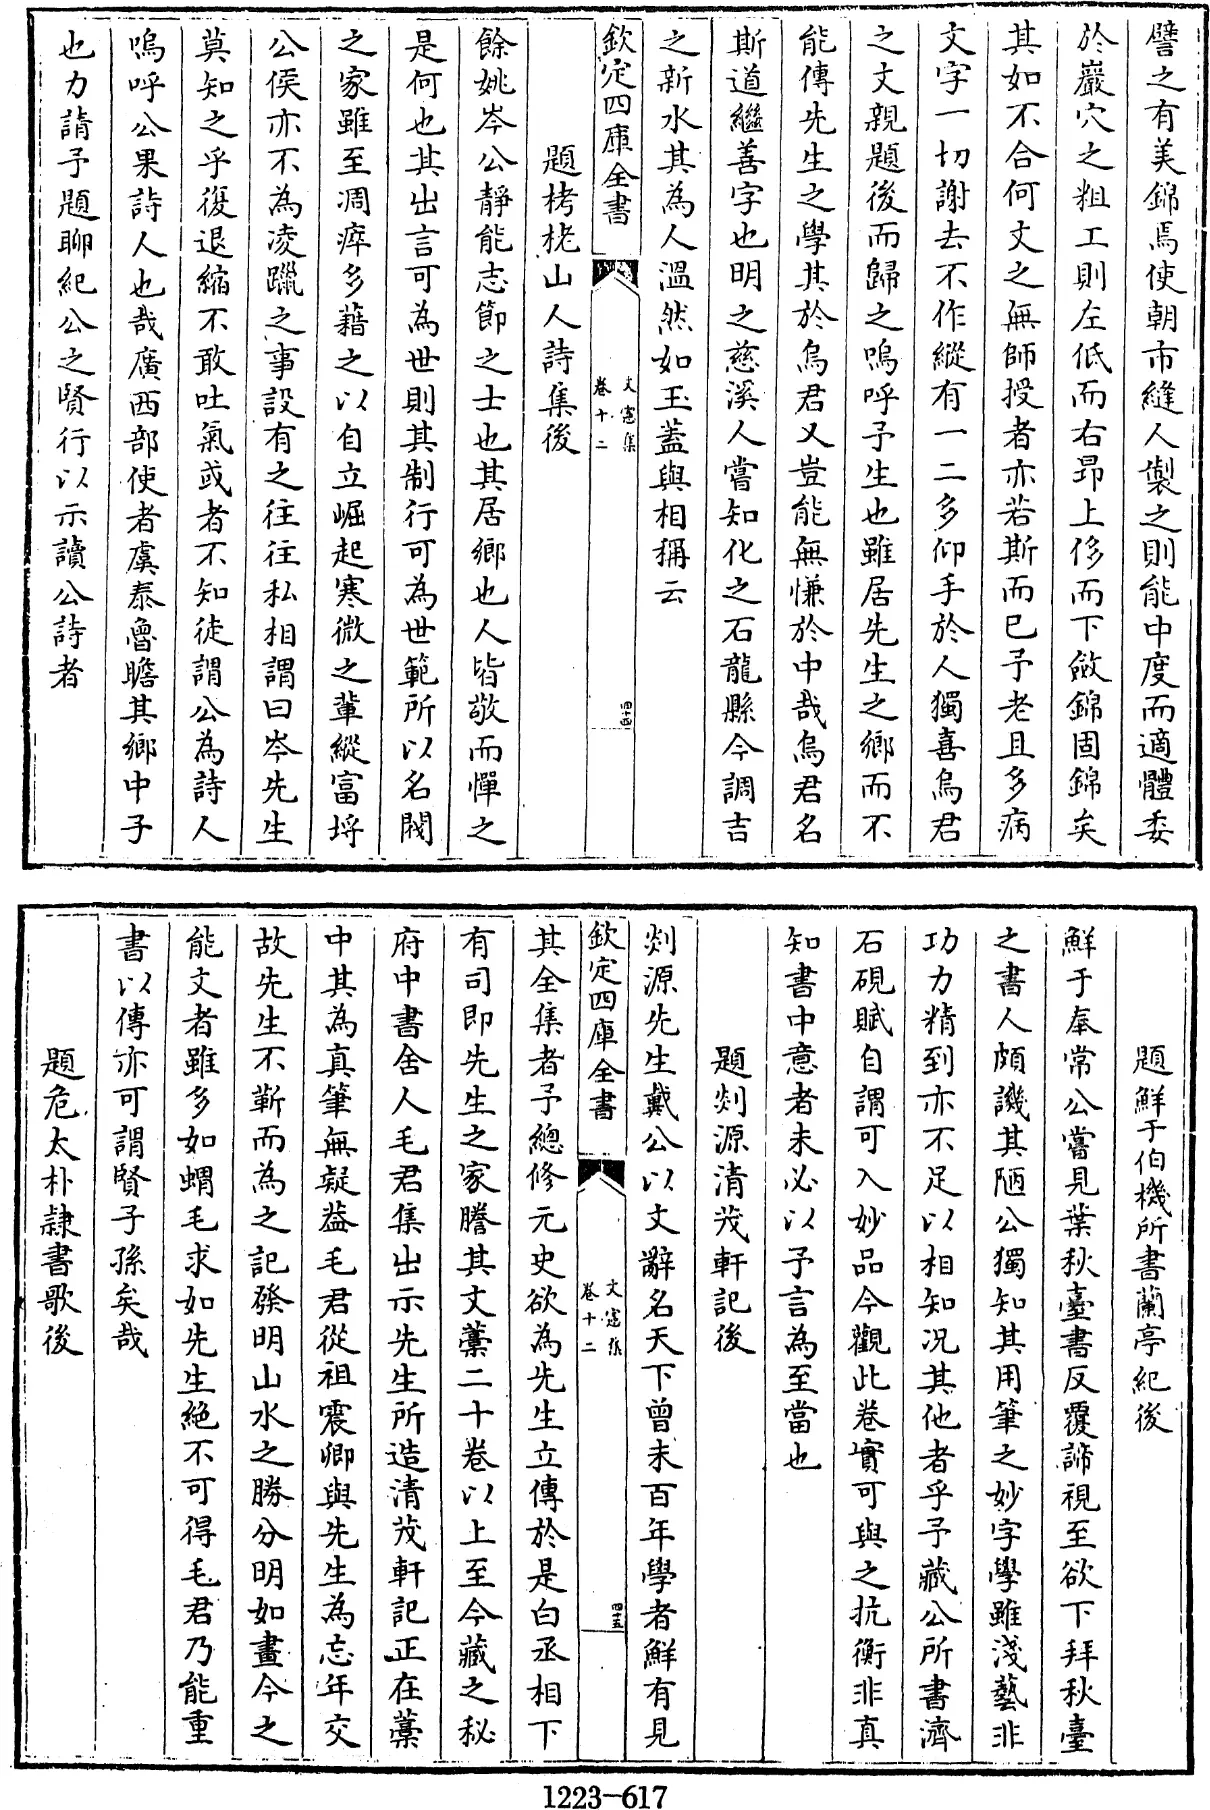 譬之有美錦焉使朝市縫人製之則能中度而適體委
於巖穴之粗工則左低而右昂上侈而下斂錦固錦矣
其如不合何文之無師授者亦若斯而已予老且多病
文字一切謝去不作縱有一二多仰手於人獨喜烏君
之文親題後而歸之嗚呼予生也雖居先生之鄉而不
能傳先生之學其於烏君又豈能無慊於中哉烏君名
斯道繼善字也明之慈溪人嘗知化之石龍縣今調吉
之新水其為人溫然如玉蓋與相稱云
欽定四庫全書
文憲集
卷十二
四十四
題栲栳山人詩集後
餘姚岑公靜能志節之士也其居鄉也人皆敬而憚之
是何也其出言可為世則其制行可為世範所以名閥
之家雖至凋瘁多藉之以自立崛起寒微之輩縱富埒
公侯亦不為凌躐之事設有之往往私相謂曰岑先生
莫知之乎復退縮不敢吐氣或者不知徒謂公為詩人
嗚呼公果詩人也哉廣西部使者虞泰魯瞻其鄉中子
也力請予題聊紀公之賢行以示讀公詩者
題鮮于伯機所書蘭亭紀後
鮮于奉常公嘗見葉秋臺書反覆諦視至欲下拜秋臺
之書人頗譏其陋公獨知其用筆之妙字學雖淺藝非
功力精到亦不足以相知况其他者乎予藏公所書濟
石硯賦自謂可入妙品今觀此卷實可與之抗衡非真
知書中意者未必以予言為至當也
題剡源清茂軒記後
剡源先生戴公以文辭名天下曾未百年學者鮮有見
欽定四庫全書
文憲集
卷十二
四十五
其全集者予總修元史欲為先生立傳於是白丞相下
有司即先生之家謄其文藁二十卷以上至今藏之秘
府中書舍人毛君集出示先生所造清茂軒記正在藁
中其為真筆無疑葢毛君從祖震卿與先生為忘年交
故先生不靳而為之記發明山水之勝分明如畫今之
能文者雖多如蝟毛求如先生絕不可得毛君乃能重
書以傳亦可謂賢子孫矣哉
題危太朴隸書歌後
1223-617